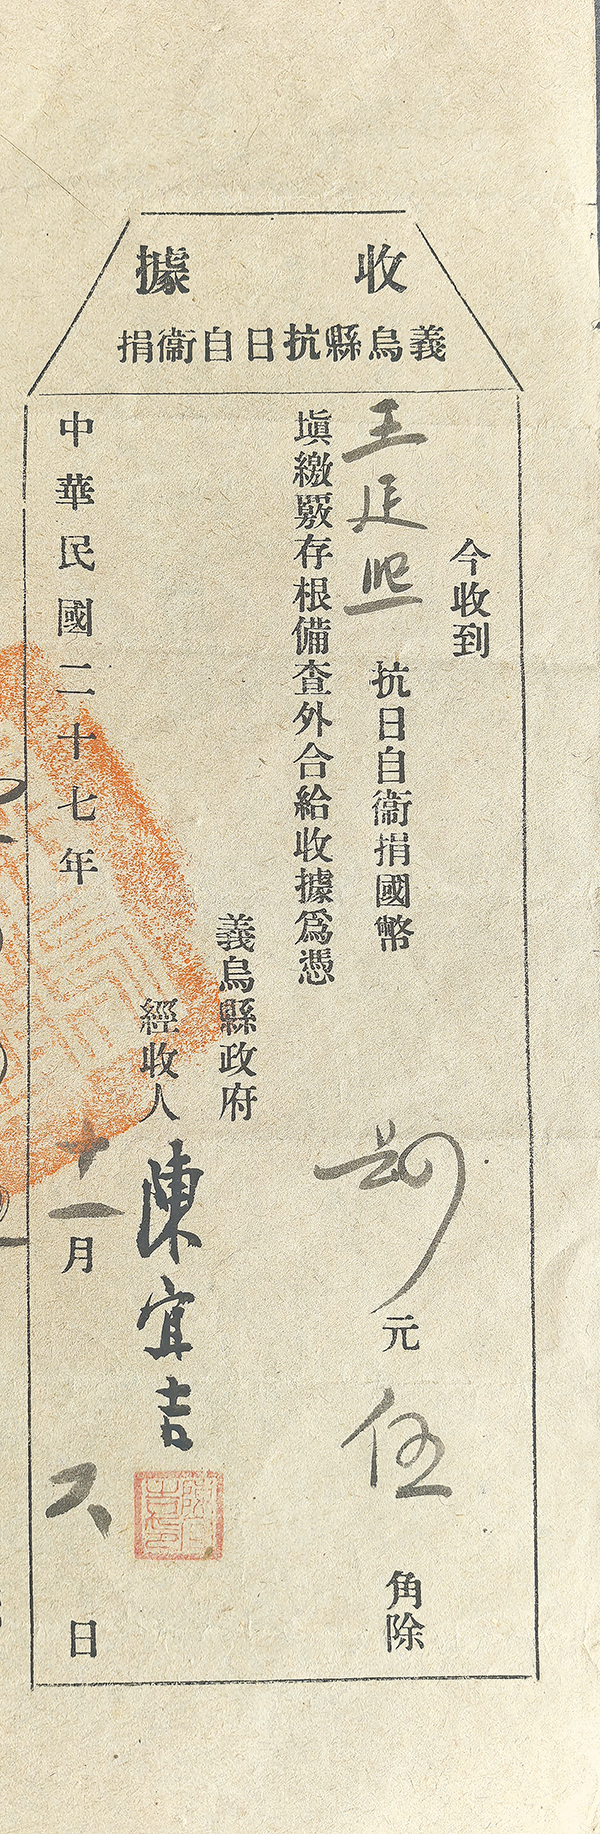 收據
義烏縣抗日自衞捐
今收到
王延熙 抗日自衞捐國幣 元伍角除
塡繳覈存根備查外合給收據爲憑
義烏縣政府
經收人 陳宜吉
陳宜吉印
中華民國二十七年十一月 日